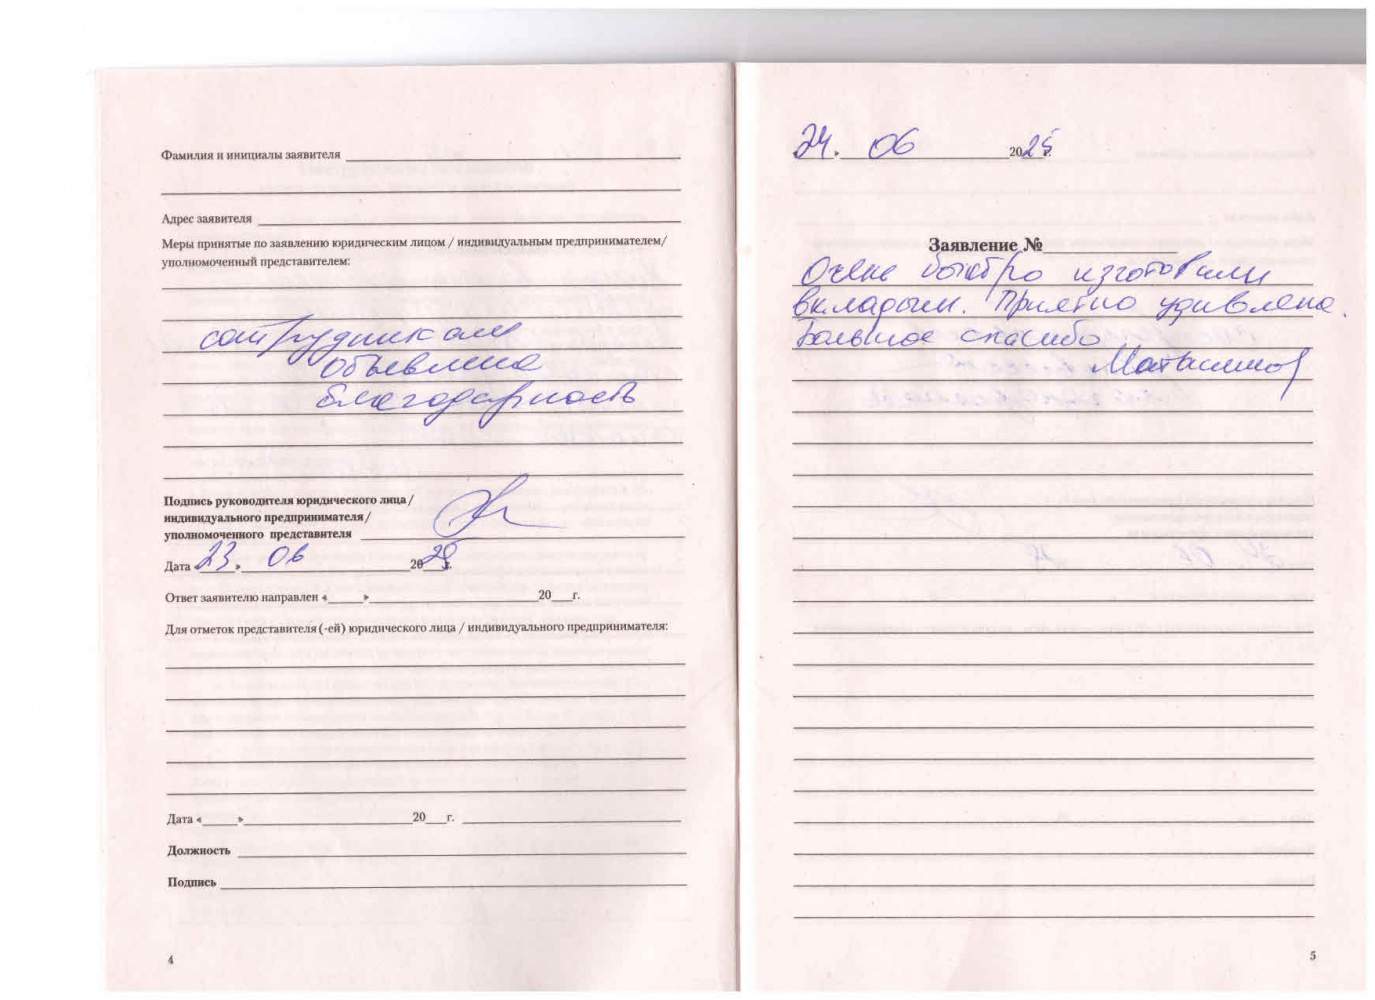 Фамилия и инициалы заявителя
Адрес заявителя
Меры принятые по заявлению юридическим лицом / индивидуальным предпринимателем/
уполномоченный представителем:
сотрудникам
объявлена
благодарность
Подпись руководителя юридического лица/
индивидуального предпринимателя/
уполномоченного представителя
Дата «23» 06 2025 г.
Ответ заявителю направлен «___»___ 20__г.
Для отметок представителя (-ей) юридического лица / индивидуального предпринимателя:
Дата «___»___ 20__г.
Должность
Подпись
4
24. 06 2025 г.
Заявление №
Очень быстро изготовили
вкладыш. Приятно удивлена.
Большое спасибо
5